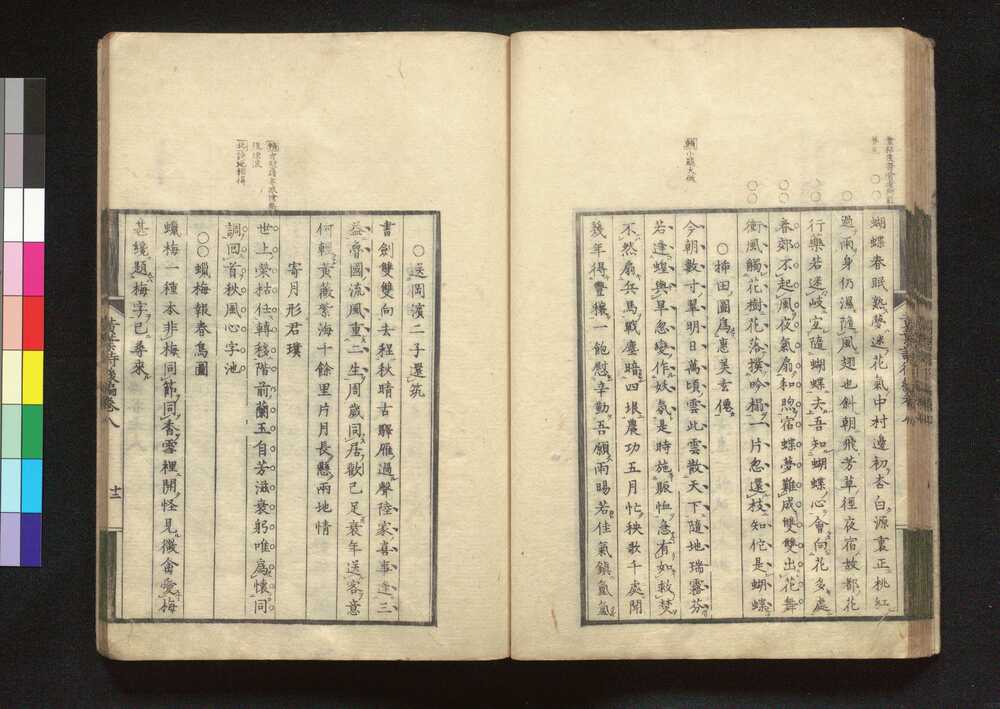 蝴蝶春眠熟夢迷花氣中村邊初杏白源裏正桃紅
過雨身仍濕隨風翅也斜朝飛芳草徑夜宿故都花
行藥若迷岐宜隨蝴蝶去吾知蝴蝶心會向花多處
春郊不起風夜氣扇和煦宿蝶夢難成雙雙出花舞
衝風觸花樹花落撲吟榻一片忽還枝知佗是蝴蝶
○柿田圖爲惠美玄僊
今朝數寸翠明日萬頃雲此雲散天下隨地瑞靄芬
若逢蝗與旱忽變作妖氛是時施賑恤急有如救焚
不然扇兵馬戰塵暗四垠農功五月忙秧歌千處聞
幾年得豐穰一飽慰辛勤吾願雨暘若佳氣鎮氤氳
賴小題大做
○送岡濱二子還筑
書劍雙雙向去程秋晴古驛雁過聲陸家喜事逢三
益魯國流風重二生周歲同居歡已足衰年送客意
何輕黃薇紫海十餘里片月長懸兩地情
寄月形君璞
世上榮枯任轉移階前蘭玉自芳滋衰躬唯爲懷同
調回首秋風心字池
○○蠟梅報春鳥圖
蠟梅一種本非梅同節同香雪裡開怪見微禽愛梅
甚纔題梅字已尋來
黃葉詩後編卷八
十二